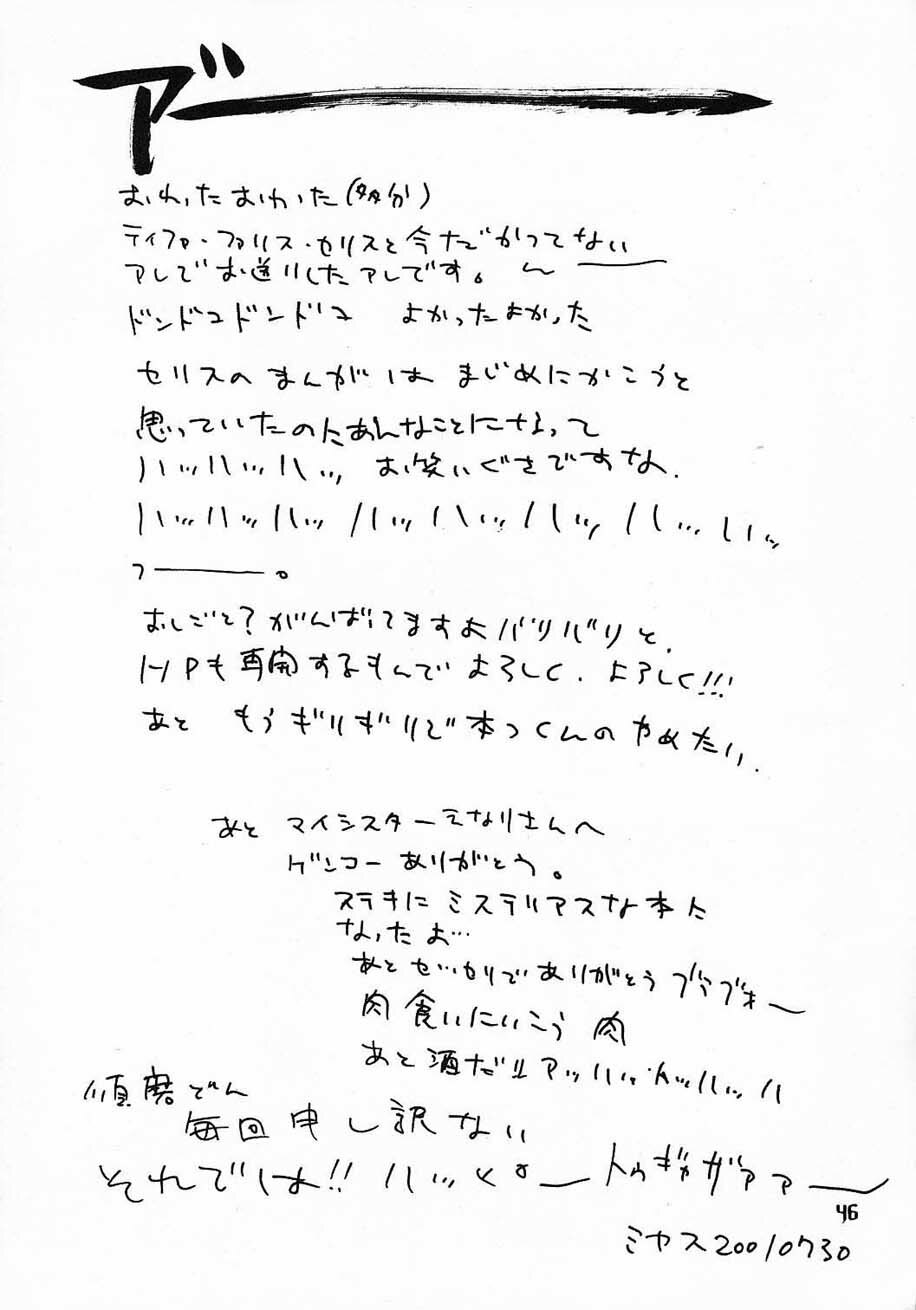 ア゛ー
おわったおわった(多分)
ティファ・ファリス・セリスと今だかつてない
アレでお送りしたアレです。〜
ドンドコドンドコ よかったよかった
セリスのまんがは まじめにかこうと
思っていたのにあんなことになって
ハッハッハッ お笑いぐさですな.
ハッハッハッハッハッハッハッハッ
フー。
おしごと?がんばってますよバリバリと.
HPも再開するもんで よろしく. よろしく!!!
あと もうギリギリで本つくんのやめたい.
あと マイシスターえなりさんへ
ゲンコーありがとう。
ステキにミステリアスな本に
なったよ…
あと ありがとう
肉食いにいこう 肉
あと酒だ!! アッハッハッハッハ
須磨どん
毎回申し訳ない
それでは!!
46
ミヤス20010730